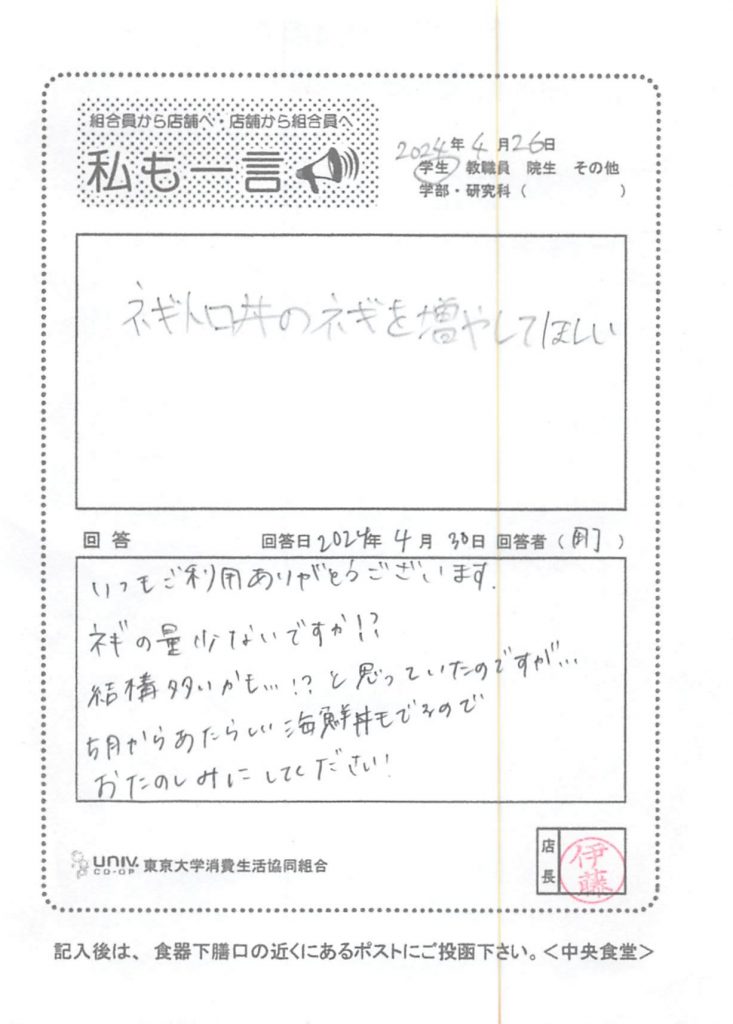 組合員から店舗へ・店舗から組合員へ
私も一言
2024年4月26日
学生 教職員 院生 その他
学部・研究科（ ）
ネギトロ丼のネギを増やしてほしい
回答 回答日2024年4月30日 回答者（ ）
いつもご利用ありがとうございます.
ネギの量少ないですか!?
結構多いかも…!?と思っていたのですが…
5月からあたらしい海鮮丼もでるので
おたのしみにしてください!
UNIV. CO-OP 東京大学消費生活協同組合
店長 伊藤
記入後は、食器下膳口の近くにあるポストにご投函下さい。＜中央食堂＞